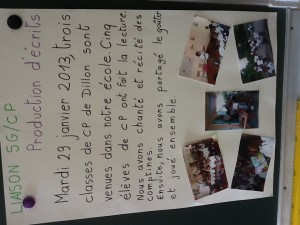 LIAISON SG/CP
Production d'écrits
Mardi 29 janvier 2013, trois
classes de CP de Dillon sont
venues dans notre école. Cinq
élèves de CP ont fait la lecture
Nous avons chanté et récité des
comptines.
Ensuite, nous avons partagé le goûter
et joué ensemble.